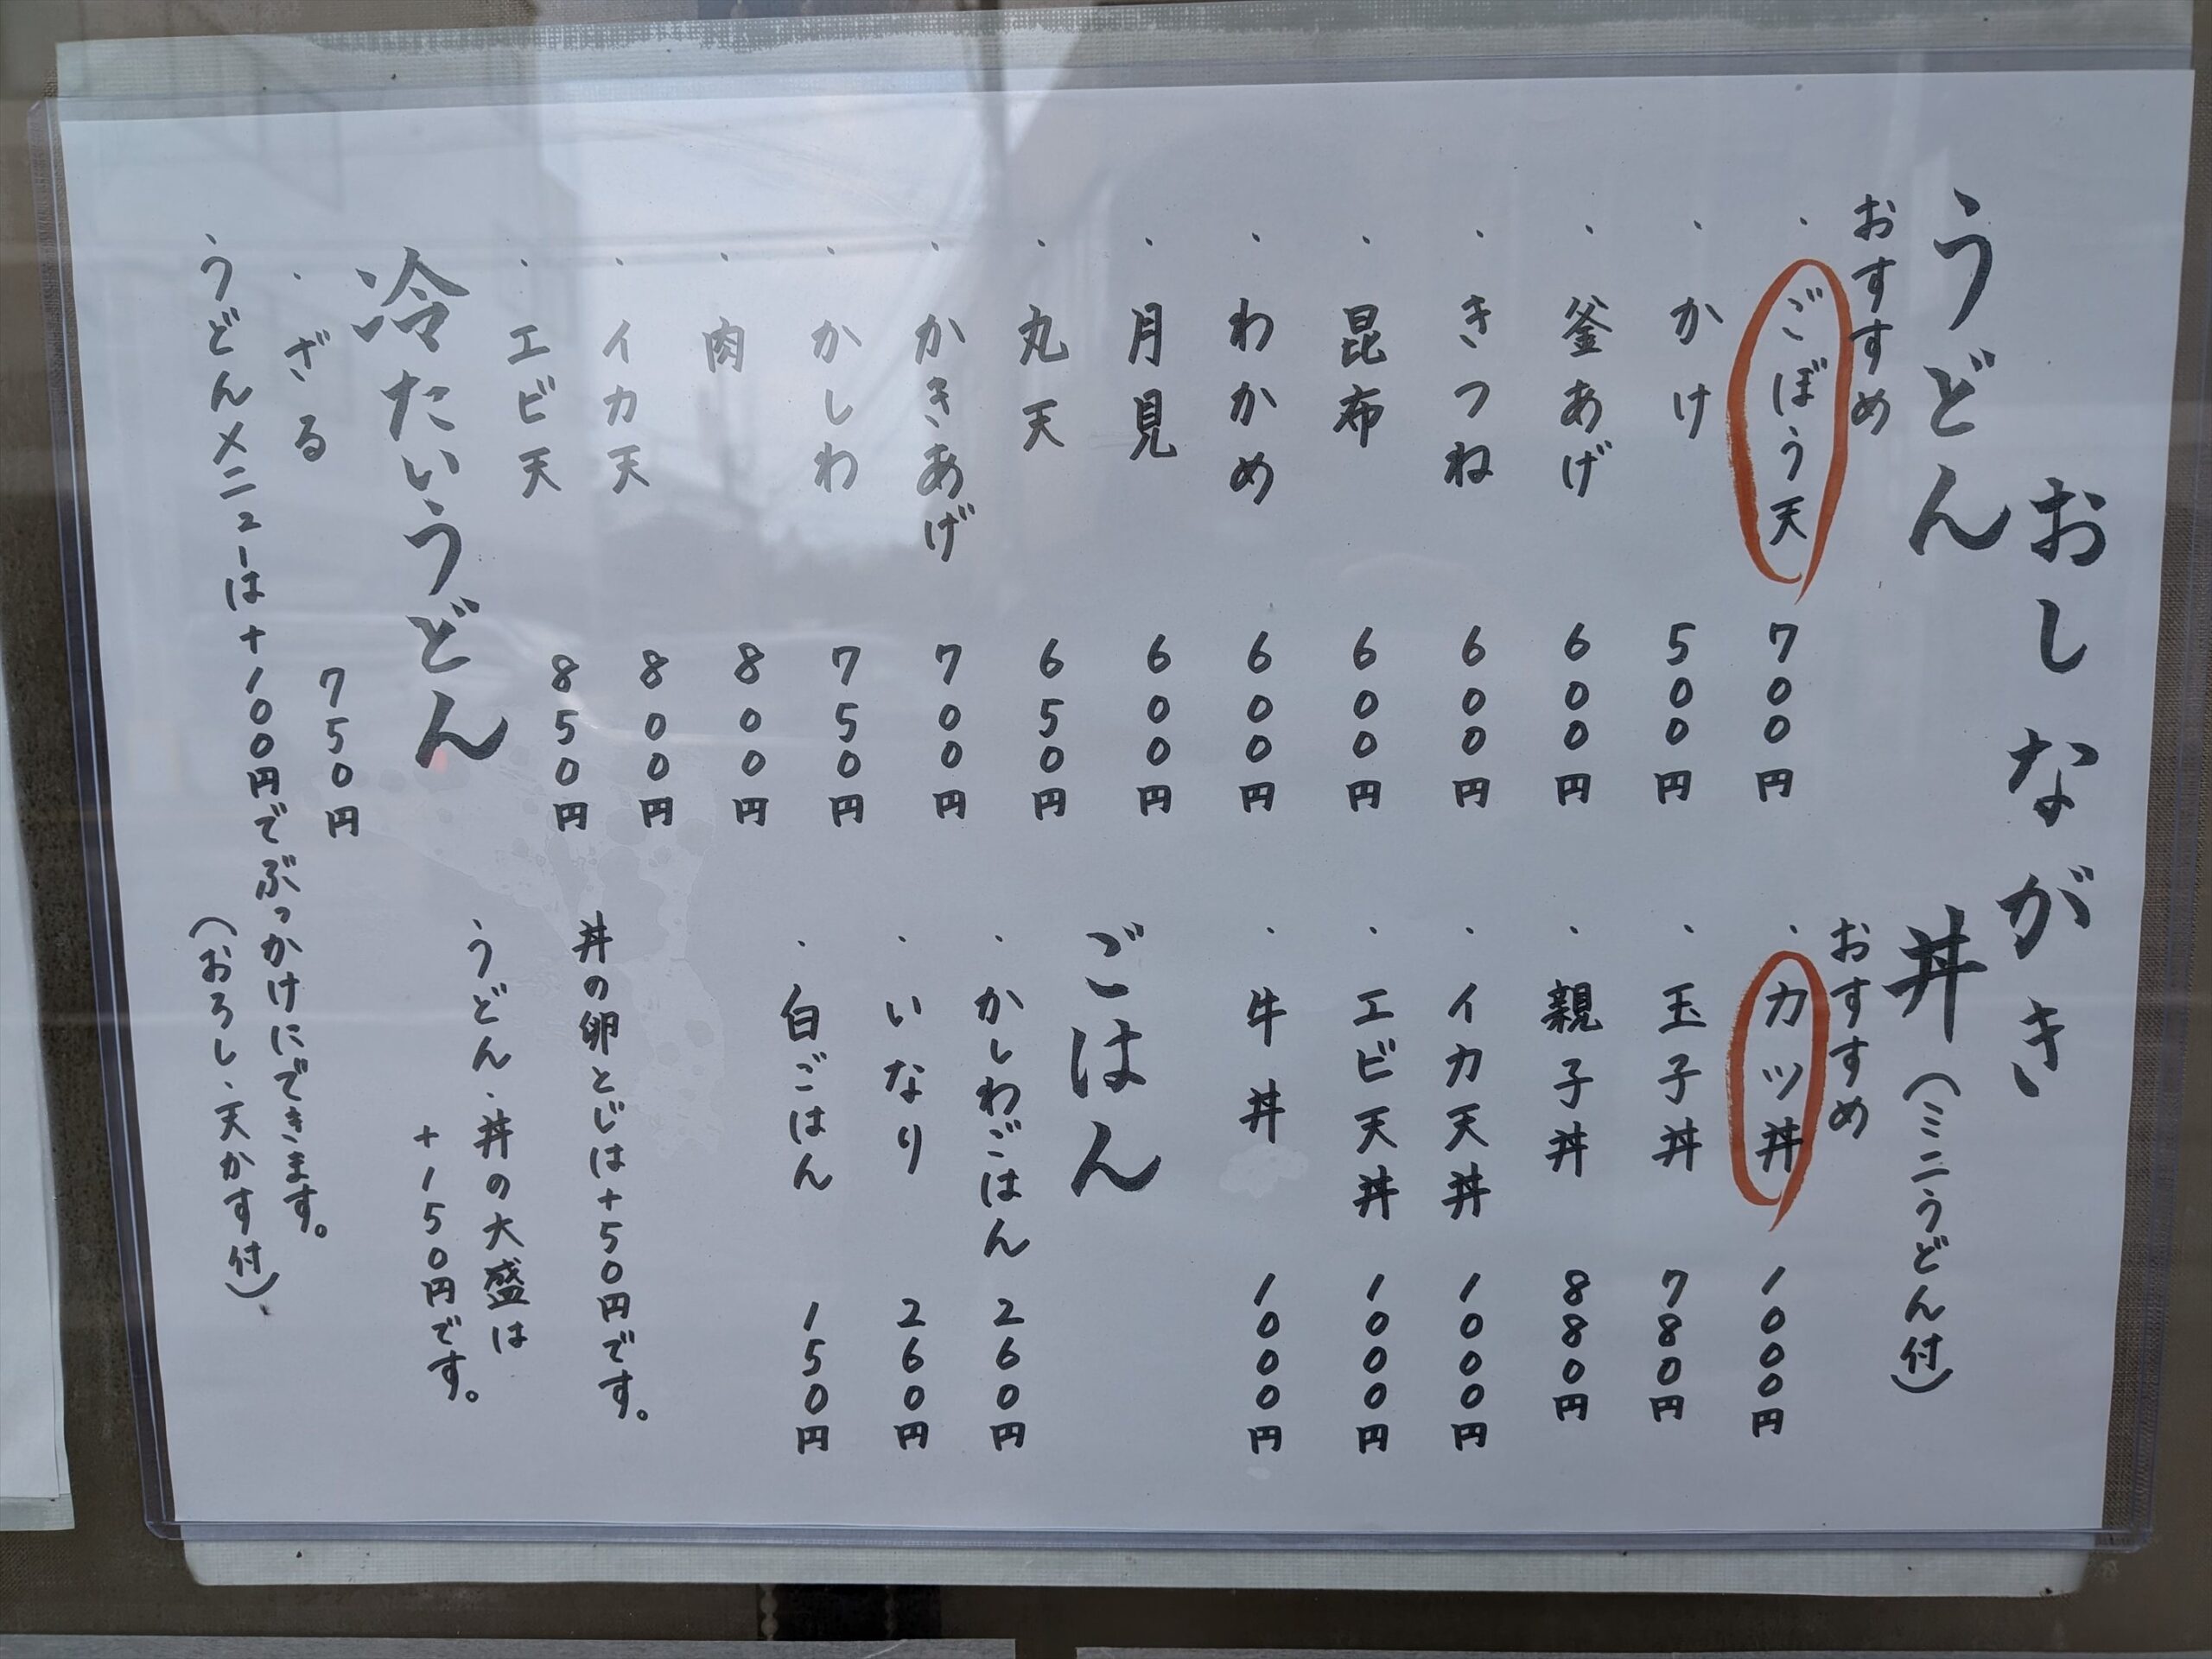 おしながき
うどん
おすすめ
・ごぼう天 700円
・かけ 500円
・釜あげ 600円
・きつね 600円
・昆布 600円
・わかめ 600円
・月見 600円
・丸天 650円
・かきあげ 700円
・かしわ 750円
・肉 800円
・イカ天 800円
・エビ天 850円
冷たいうどん
・ざる 750円
・うどんメニューは+100円でぶっかけにできます。
(おろし、天かす付)
丼(ミニうどん付)
おすすめ
・カツ丼 1000円
・玉子丼 780円
・親子丼 880円
・イカ天丼 1000円
・エビ天丼 1000円
・牛丼 1000円
ごはん
・かしわごはん 260円
・いなり 260円
・白ごはん 150円
丼の卵とじは+50円です。
・うどん、丼の大盛は
+150円です。